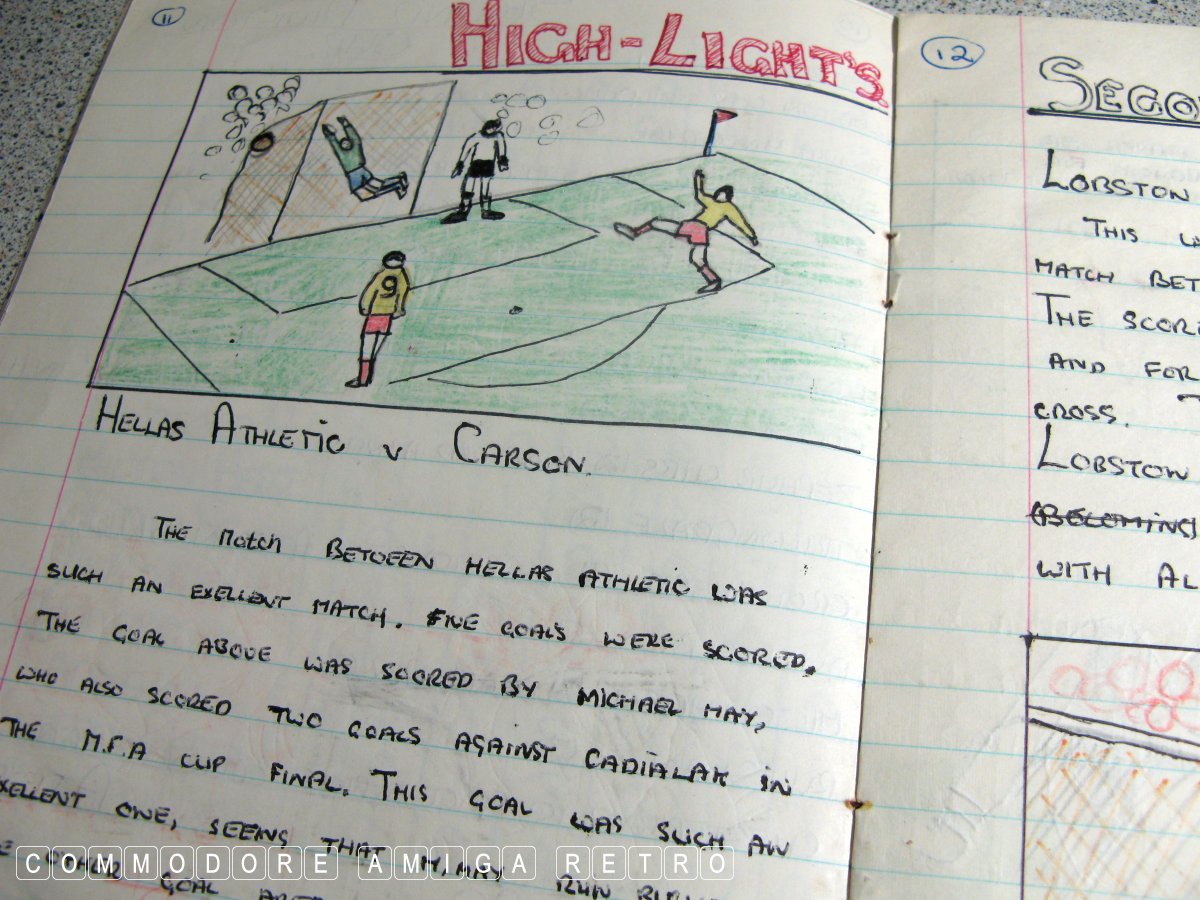 11
HIGH-LIGHT'S.
9
HELLAS ATHLETIC v CARSON.
THE Match BETWEEN HELLAS ATHLETIC WAS
SUCH AN EXELLENT MATCH. FIVE GOALS WERE SCORED.
THE GOAL ABOVE WAS SCORED BY MICHAEL MAY,
WHO ALSO SCORED TWO GOALS AGAINST CADIALAK IN
THE M.F.A CUP FINAL. THIS GOAL WAS SUCH AN
XELLENT ONE, SEEING THAT M.MAY RUN
GOAL
12
SECO
LOBSTON
THIS
MATCH BET
THE SCOR
AND FOR
CROSS.
LOBSTON
(BECOMING)
WITH AL
COMMODORE AMIGA RETRO